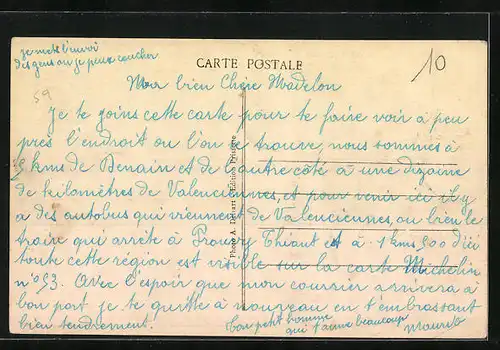 je mets l'envoi
des gens ou je peux coucher
CARTE POSTALE
10
59
Ma bien Chère Madelon
Je te joins cette carte pour te faire voir à peu
près l'endroit ou l'on se trouve, nous sommes à
5 kms de Denain et de l'autre côté à une dizaine
de kilomètres de Valenciennes, et pour venir ici il y
a des autobus qui viennent de Valenciennes, ou bien le
train qui arrête à Prouvy Thiant et à 1 kms 500 d'ici
toute cette région est visible sur la carte Michelin
n° 53. Avec l'espoir que mon courrier arrivera à
bon port je te quitte à nouveau en t'embrassant
bien tendrement.
ton petit homme
qui t'aime beaucoup
Maurice
Photo A. Édition